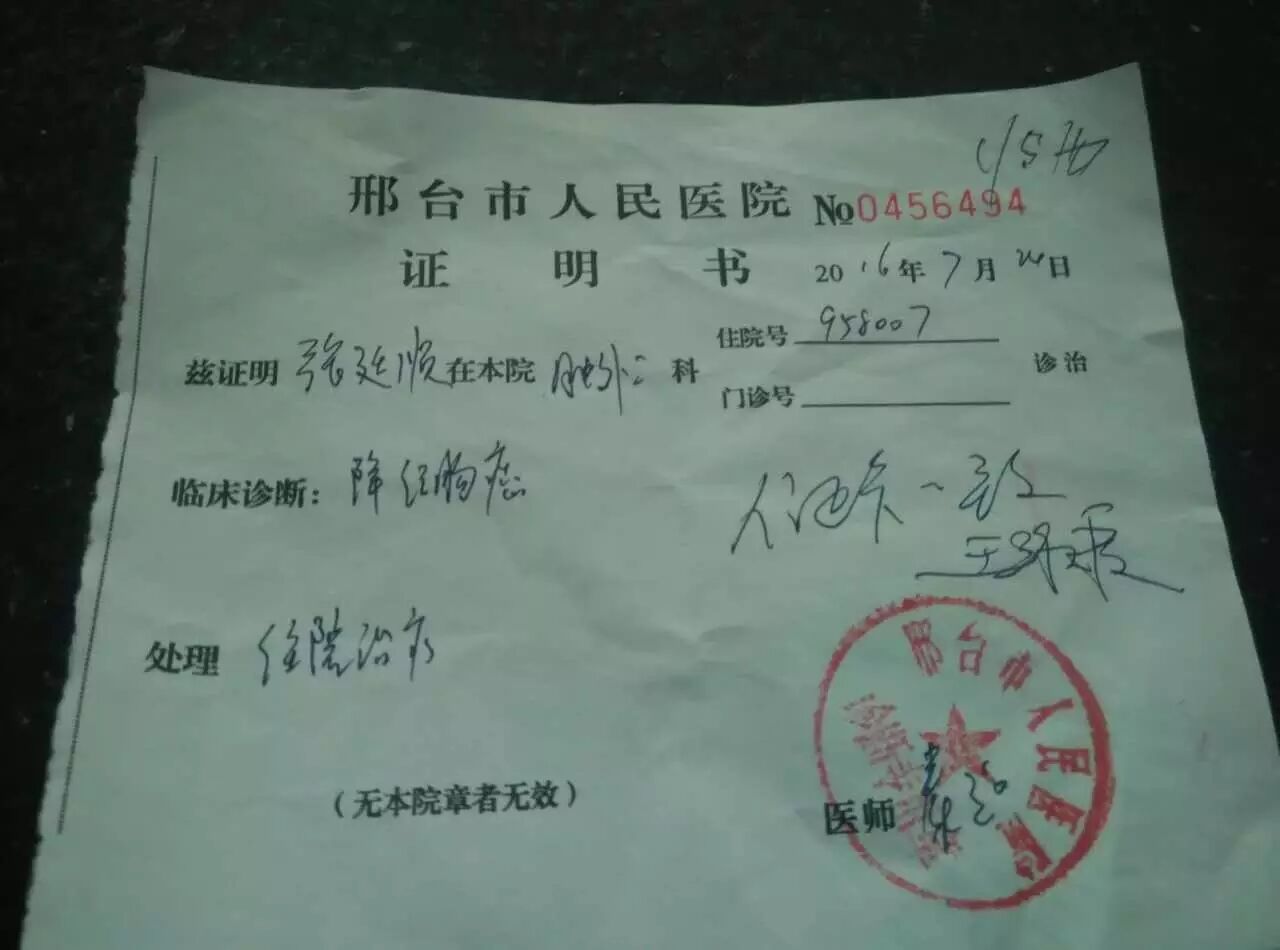 邢台市人民医院 №0456494
证明书 2016年7月24日
住院号 958007
兹证明 张廷顺 在本院 肿外二 科 诊治
门诊号
临床诊断: 降结肠癌
人证卡一致
处理 住院治疗
邢台市人民医院
(无本院章者无效)
医师